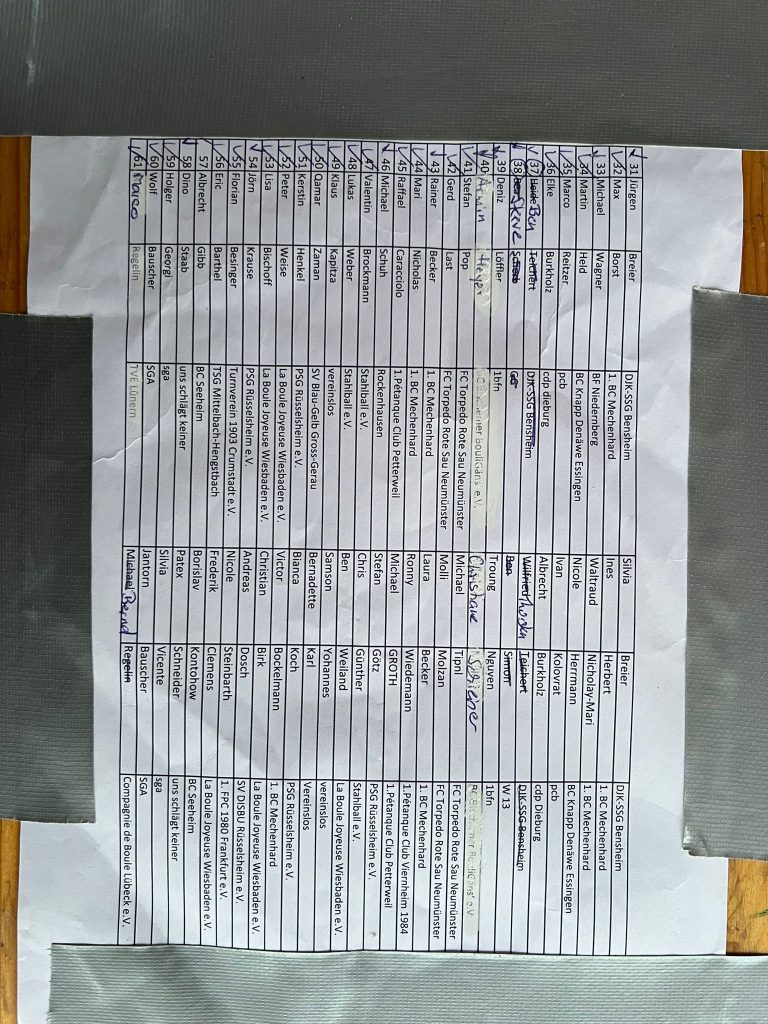 31 Jürgen Breier DJK-SSG Bensheim Silvia Breier DJK-SSG Bensheim
32 Max Borst 1. BC Mechenhard Ines Herbert 1. BC Mechenhard
33 Michael Wagner BF Niedernberg Waltraud Nicholay-Mari 1. BC Mechenhard
34 Martin Held BC Knapp Denäwe Essingen Nicole Herrmann BC Knapp Denäwe Essingen
35 Marco Reitzer pcb Ivan Kolovrat pcb
36 Elke Burkholz cdp dieburg Albrecht Burkholz cdp Dieburg
37 Ben Teichert DJK-SSG Bensheim Wilfried Teichert DJK-SSG Bensheim
38 Ben Simon W 13
39 Deniz Löffler 1bfn Troung Nguyen 1bfn
40 Armin Heyer BouliGans' e.V. Christiane
41 Stefan Pop FC Torpedo Rote Sau Neumünster Michael Tipnl FC Torpedo Rote Sau Neumünster
42 Gerd Last FC Torpedo Rote Sau Neumünster Molli Molzan FC Torpedo Rote Sau Neumünster
43 Rainer Becker 1. BC Mechenhard Laura Becker 1. BC Mechenhard
44 Mari Nicholas 1. BC Mechenhard Ronny Wiedemann 1.Pétanque Club Viernheim 1984
45 Raffael Caracciolo 1.Pétanque Club Petterweil Michael GROTH 1.Pétanque Club Petterweil
46 Michael Schuh Rockenhausen Stefan Götz PSG Rüsselsheim e.V.
47 Valentin Brockmann Stahlball e.V. Chris Günther Stahlball e.V.
48 Lukas Weber Stahlball e.V. Ben Weiland La Boule Joyeuse Wiesbaden e.V.
49 Klaus Kapitza vereinslos Samson Yohannes vereinslos
50 Qamar Zaman SV Blau-Gelb Gross-Gerau Bernadette Karl Vereinslos
51 Kerstin Henkel PSG Rüsselsheim e.V. Bianca Koch PSG Rüsselsheim e.V.
52 Peter Weise La Boule Joyeuse Wiesbaden e.V. Victor Bockelmann 1. BC Mechenhard
53 Lisa Bischoff La Boule Joyeuse Wiesbaden e.V. Christian Birk La Boule Joyeuse Wiesbaden e.V.
54 Jörn Krause PSG Rüsselsheim e.V. Andreas Dosch SV DISBU Rüsselsheim e.V.
55 Florian Besinger Turnverein 1903 Crumstadt e.V. Nicole Steinbarth 1. FPC 1980 Frankfurt e.V.
56 Eric Barthel TSG Mittelbach-Hengstbach Frederik Clemens La Boule Joyeuse Wiesbaden e.V.
57 Albrecht Gibb BC Seeheim Borislav Kontohow BC Seeheim
58 Dino Staab uns schlägt keiner Patex Schneider uns schlägt keiner
59 Holger Georgi sga Silvia Vicente sga
60 Wolf Bauscher SGA Jantorn Bauscher SGA
61 Marco Regelin TVE Lünern Michael Bernd Regelin Compagnie de Boule Lübeck e.V.